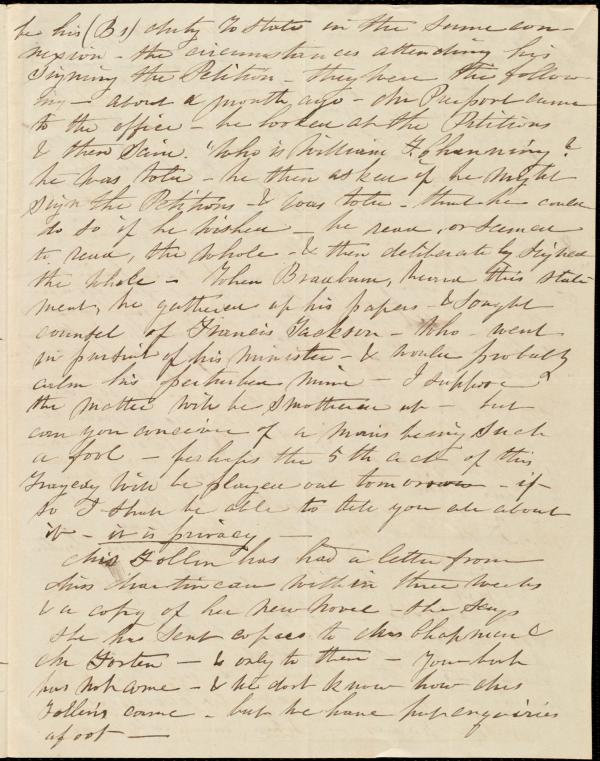 be his (B's) duty to state in the same con-
nexion - the circumstances attending his
signing the Petition - they were the follow-
ing - about a month ago - Mr Pierpont came
to the office - he looked at the Petitions
& then said. "Who is William F. Channing?
he was told - he then asked if he might
sign the Petitions - & was told - that he could
do so if he wished - he read, or seemed
to read, the whole - & then deliberately signed
the whole - When Bradburn, heard this state-
ment, he gathered up his papers - & sought
counsel of Francis Jackson - who - went
in pursuit of his minister - & would probably
calm his perturbed mind - I suppose
the matter will be smothered up - but
can you conceive of a man's being such
a fool - perhaps the 5th act of this
Tragedy will be played out tomorrow - if
so I shall be able to tell you all about
it - it is privacy -
Mrs Follen has had a letter from
Miss Martineau within three weeks
& a copy of her new novel - she says
she has sent copies to Mrs Chapman &
Mr Forten - & only to them - Your book
has not come - & we dont know how Mrs
Follen's came - but we have put enquiries
afoot -